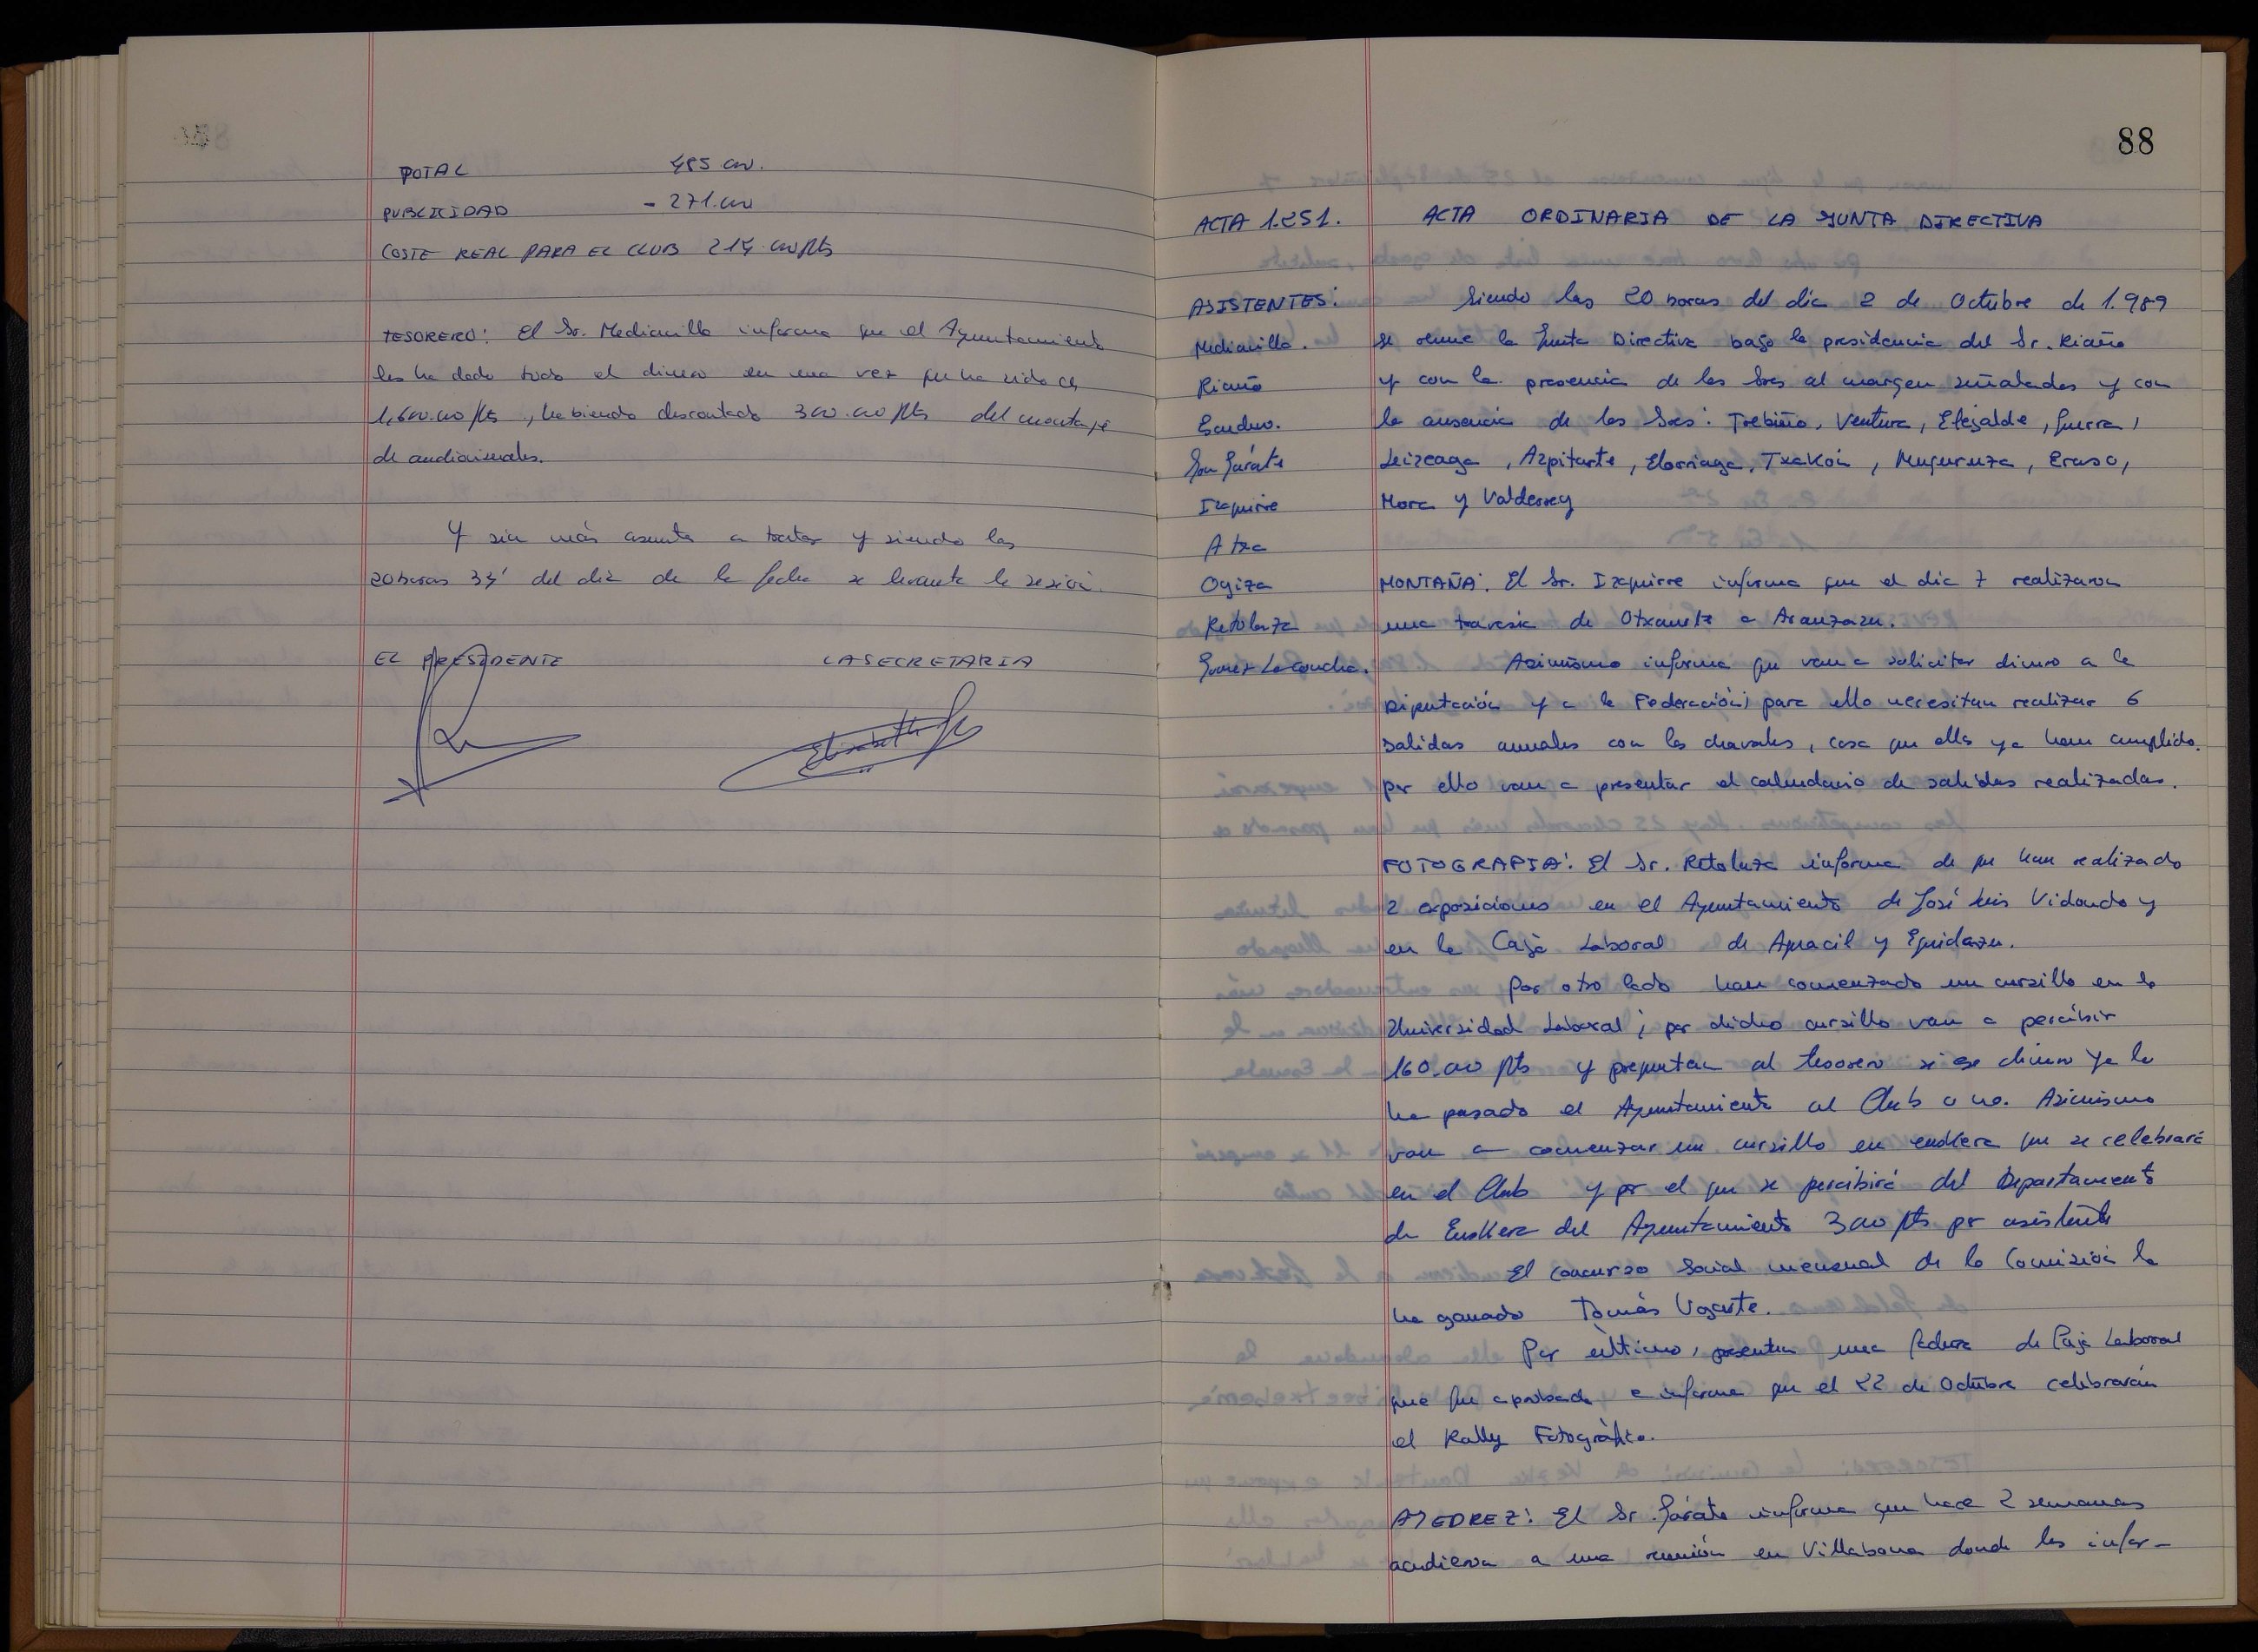 TOTAL 485.000.
PUBLICIDAD - 271.000
COSTE REAL PARA EL CLUB 214.000 pts
TESORERO: El Sr. Mediavilla informa que el Ayuntamiento
les ha dado todo el dinero en una vez que ha sido
1.600.000 pts, habiendo descontado 300.000 pts del montaje
de audiovisuales.
Y sin más asunto a tratar y siendo las
20 horas 34' del día de la fecha se levanta la sesión.
EL PRESIDENTE LA SECRETARIA
88
ACTA 1.251. ACTA ORDINARIA DE LA JUNTA DIRECTIVA
ASISTENTES: Siendo las 20 horas del día 2 de Octubre de 1.989
Mediavilla. se reune la Junta Directiva bajo la presidencia del Sr. Riaño
Riaño y con la presencia de los Sres al margen señalados y con
la ausencia de los Sres: Trebiño, Ventura, Elejalde, Guerra,
Gárate Leizeaga, Azpitarte, Elorriaga, Txakoin, Muguruza, Eraso,
Izaguirre Mora y Valderrey
Atxa
Ogiza MONTAÑA: El Sr. Izaguirre informa que el dia 7 realizaron
Retolaza una travesia de Otxaurte a Aranzazu.
Gomez Lacoucha. Asimismo informa que van a solicitar dinero a la
Diputación y a la Federación; para ello necesitan realizar 6
salidas anuales con los chavales, cosa que ellos ya han cumplido.
por ello van a presentar el calendario de salidas realizadas.
FOTOGRAFIA: El Sr. Retolaza informa de que han realizado
2 exposiciones en el Ayuntamiento de José Luis Vidondo y
en la Caja Laboral de Apracil y Eguidazu.
Por otro lado han comenzado un cursillo en la
Universidad Laboral; por dicho cursillo van a percibir
160.000 pts y preguntan al tesorero si ese dinero ya lo
ha pasado el Ayuntamiento al Club o no. Asimismo
van a comenzar un cursillo en euskera que se celebrará
en el Club y por el que se percibirá del Departamento
de Euskera del Ayuntamiento 3000 pts por asistente
El concurso social mensual de la Comisión lo
ha ganado Tomás Ugarte.
Por último, presentan una factura de Caja Laboral
que fue aprobada e informa que el 22 de Octubre celebrarán
el Rally Fotográfico.
AJEDREZ: El Sr. Gárate informa que hace 2 semanas
acudieron a una reunión en Villabona donde les infor-